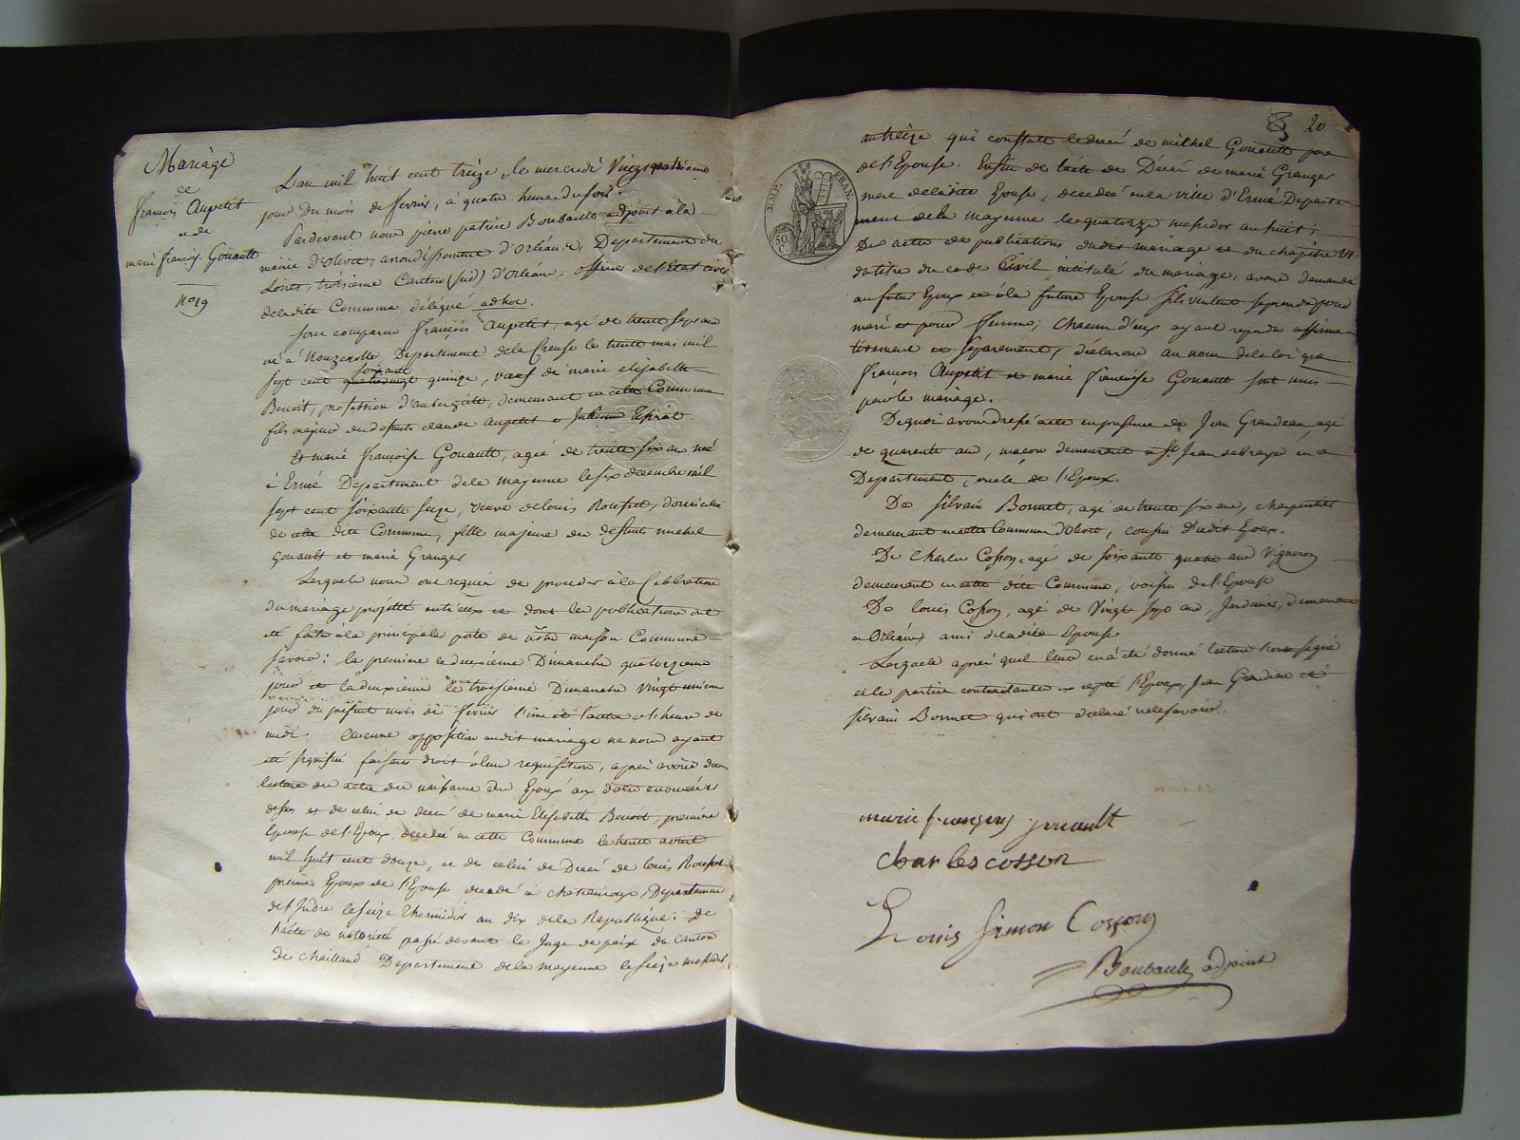 Mariage
de
françois Aupetit
et de
marie françse Gouault
No 19
L'an mil huit cent treize, le mercredi Vingt quatrième
jour du mois de fevrier, à quatre heures du soir.
Pardevant nous pierre patrice Boubault adjoint à la
mairie d'olivet, arondissement d'Orléans, Departement du
Loiret, troisième Canton (sud) d'Orléans, officier de l'Etat civil
de la dite Commune délégué ad hoc.
Sont comparus françois Aupetit, agé de trente sept ans
né à Nouzerolle, Departement de la Creuse le trente mai mil
sept cent soixante quinze, veuf de marie elisabette
Benoit, profession d'aubergiste, demeurant en cette Commune
fils majeur de defunts claude Aupetit et
Et marie françoise Gouault, agée de trente six ans née
à Ernée Departement de la mayenne le six decembre mil
sept cent soixante seize, veuve de louis Rousset, domiciliée
de cette dite Commune, fille majeure de defunts michel
Gouault et marie Granger
Lesquels nous ont requis de proceder à la Celebration
du mariage projetté entr'eux et dont les publications ont
été faites à la principale porte de notre maison Commune
savoir : la premiere le deuxieme Dimanche quatorzieme
jour et la deuxieme le troisieme Dimanche vingt unieme
jour du présent mois de fevrier l'une et l'autre à l'heure de
midi. Aucune opposition audit mariage ne nous ayant
été signifiée faisant droit à leur requisition, après avoir donné
lecture des actes de naissance des Epoux aux dates enoncées
et de celui de decès de marie Elisabette Benoit, premiere
Epouse de l'Epoux decedée en cette Commune le trente
mil huit cent douze, et de celui de Decès de louis Rousset
premier Epoux de l'Epouse decedé à chateauroux, Departement
de l'Indre le seize thermidor an dix de la Republique ; De
l'acte de notorieté passé devant le Juge de paix du Canton
de chailland Departement de la mayenne le seize messidor
20
an treize qui constate le decès de michel Gouault pere
de l'Epouse. Enfin de l'acte de Decès de marie Granger
mere de la dite Epouse, decedée en la ville d'Ernée Departe-
ment de la mayenne le quatorze messidor an huit ;
Des actes de publications dudit mariage et du chapitre VI
du titre du code Civil intitulé du mariage, avons demandé
au futur Epoux et à la future Epouse s'ils veulent se prendre pour
mari et pour femme ; chacun d'eux ayant repondu affirma-
tivement et separement, declarons au nom de la loi que
françois Aupetit et marie françoise Gouault sont unis
par le mariage.
De quoi avons dressé acte en presence de Jean Grandeau, agé
de quarante ans, maçon demeurant à St Jean
Departement, oncle de l'Epoux.
De Silvain Bonnet, agé de trente six ans, charpentier
demeurant en cette Commune d'olivet, cousin Dudit Epoux.
De Charles Cosson, agé de soixante quatre ans Vigneron
demeurant en cette dite Commune, voisin de l'Epouse
De louis Cosson, agé de Vingt sept ans, Jardinier, demeurant
à Orléans ami de la dite Epouse
Lesquels après qu'il leur en a été donné lecture l'ont signé
et les parties contractantes excepté l'Epoux, Jean Grandeau et
Silvain Bonnet qui ont declaré ne le savoir.
marie françois gouault
Charles cosson
Louis Simon Cosson
Boubault adjoint
IMP. FRAN.